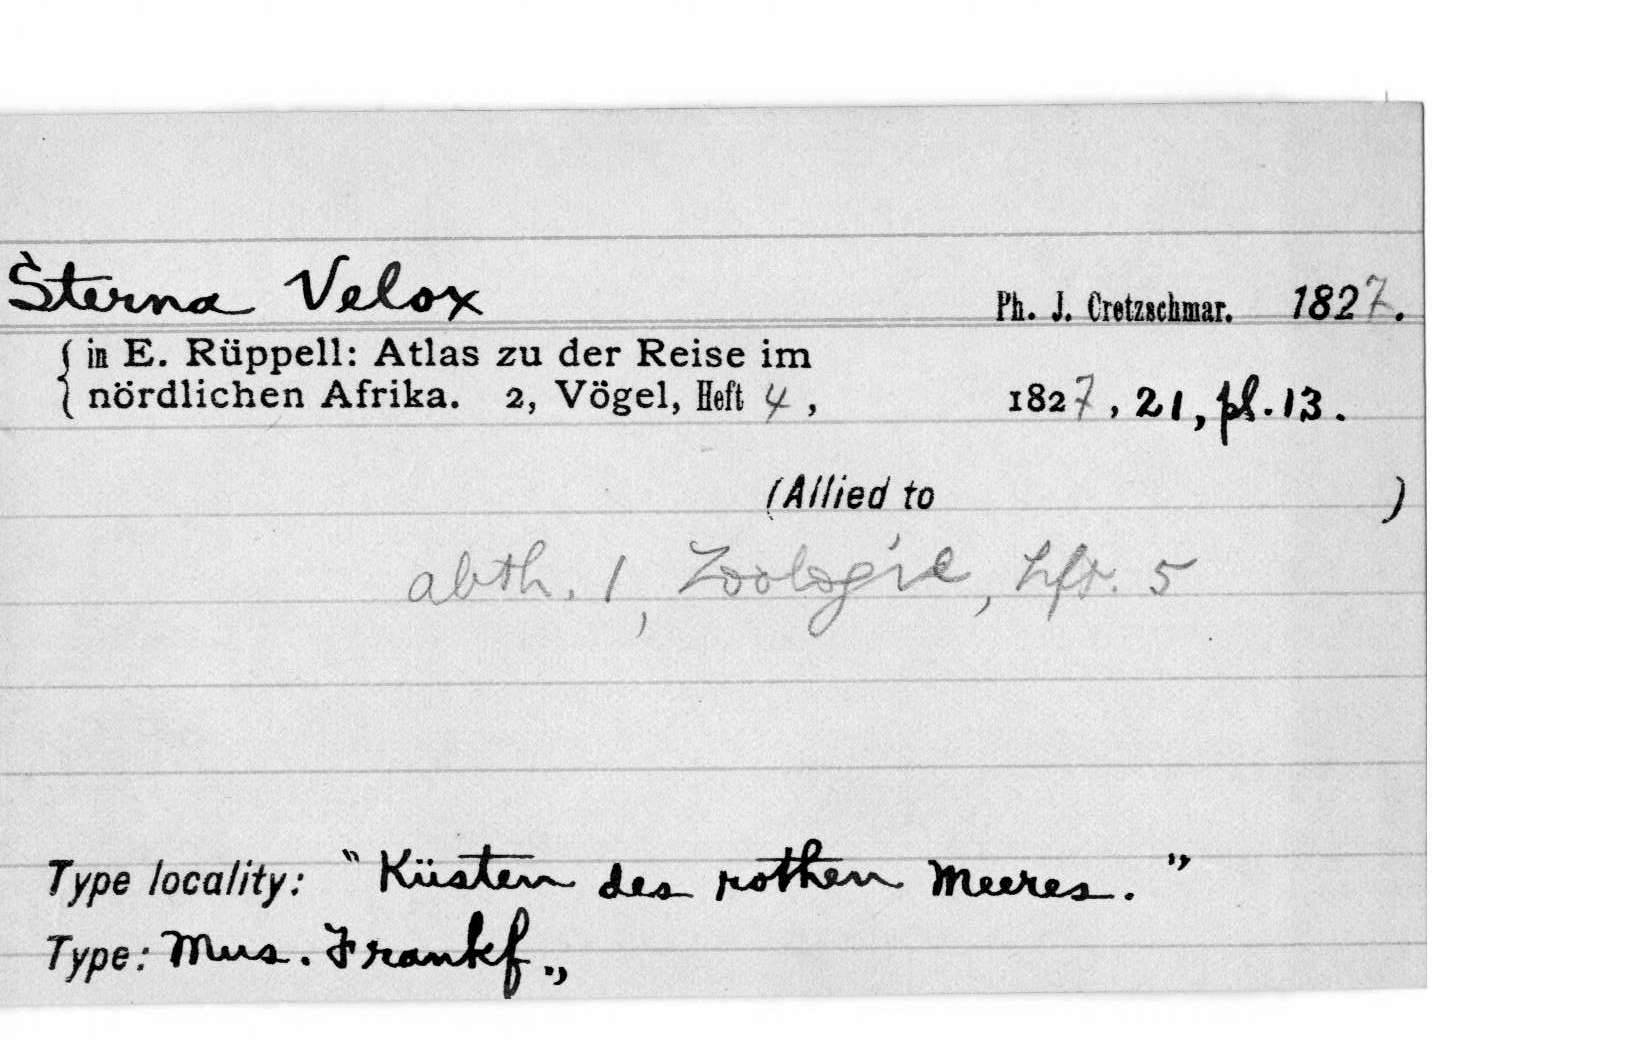 Sterna Velox Ph. J. Cretzschmar. 1827.
in E. Rüppell: Atlas zu der Reise im
nördlichen Afrika. 2, Vögel, Heft 4, 1827, 21, pl. 13.
(Allied to )
abth. 1, Zoologie, Hft. 5
Type locality: "Küsten des rothen Meeres."
Type: Mus. Frankf.,,